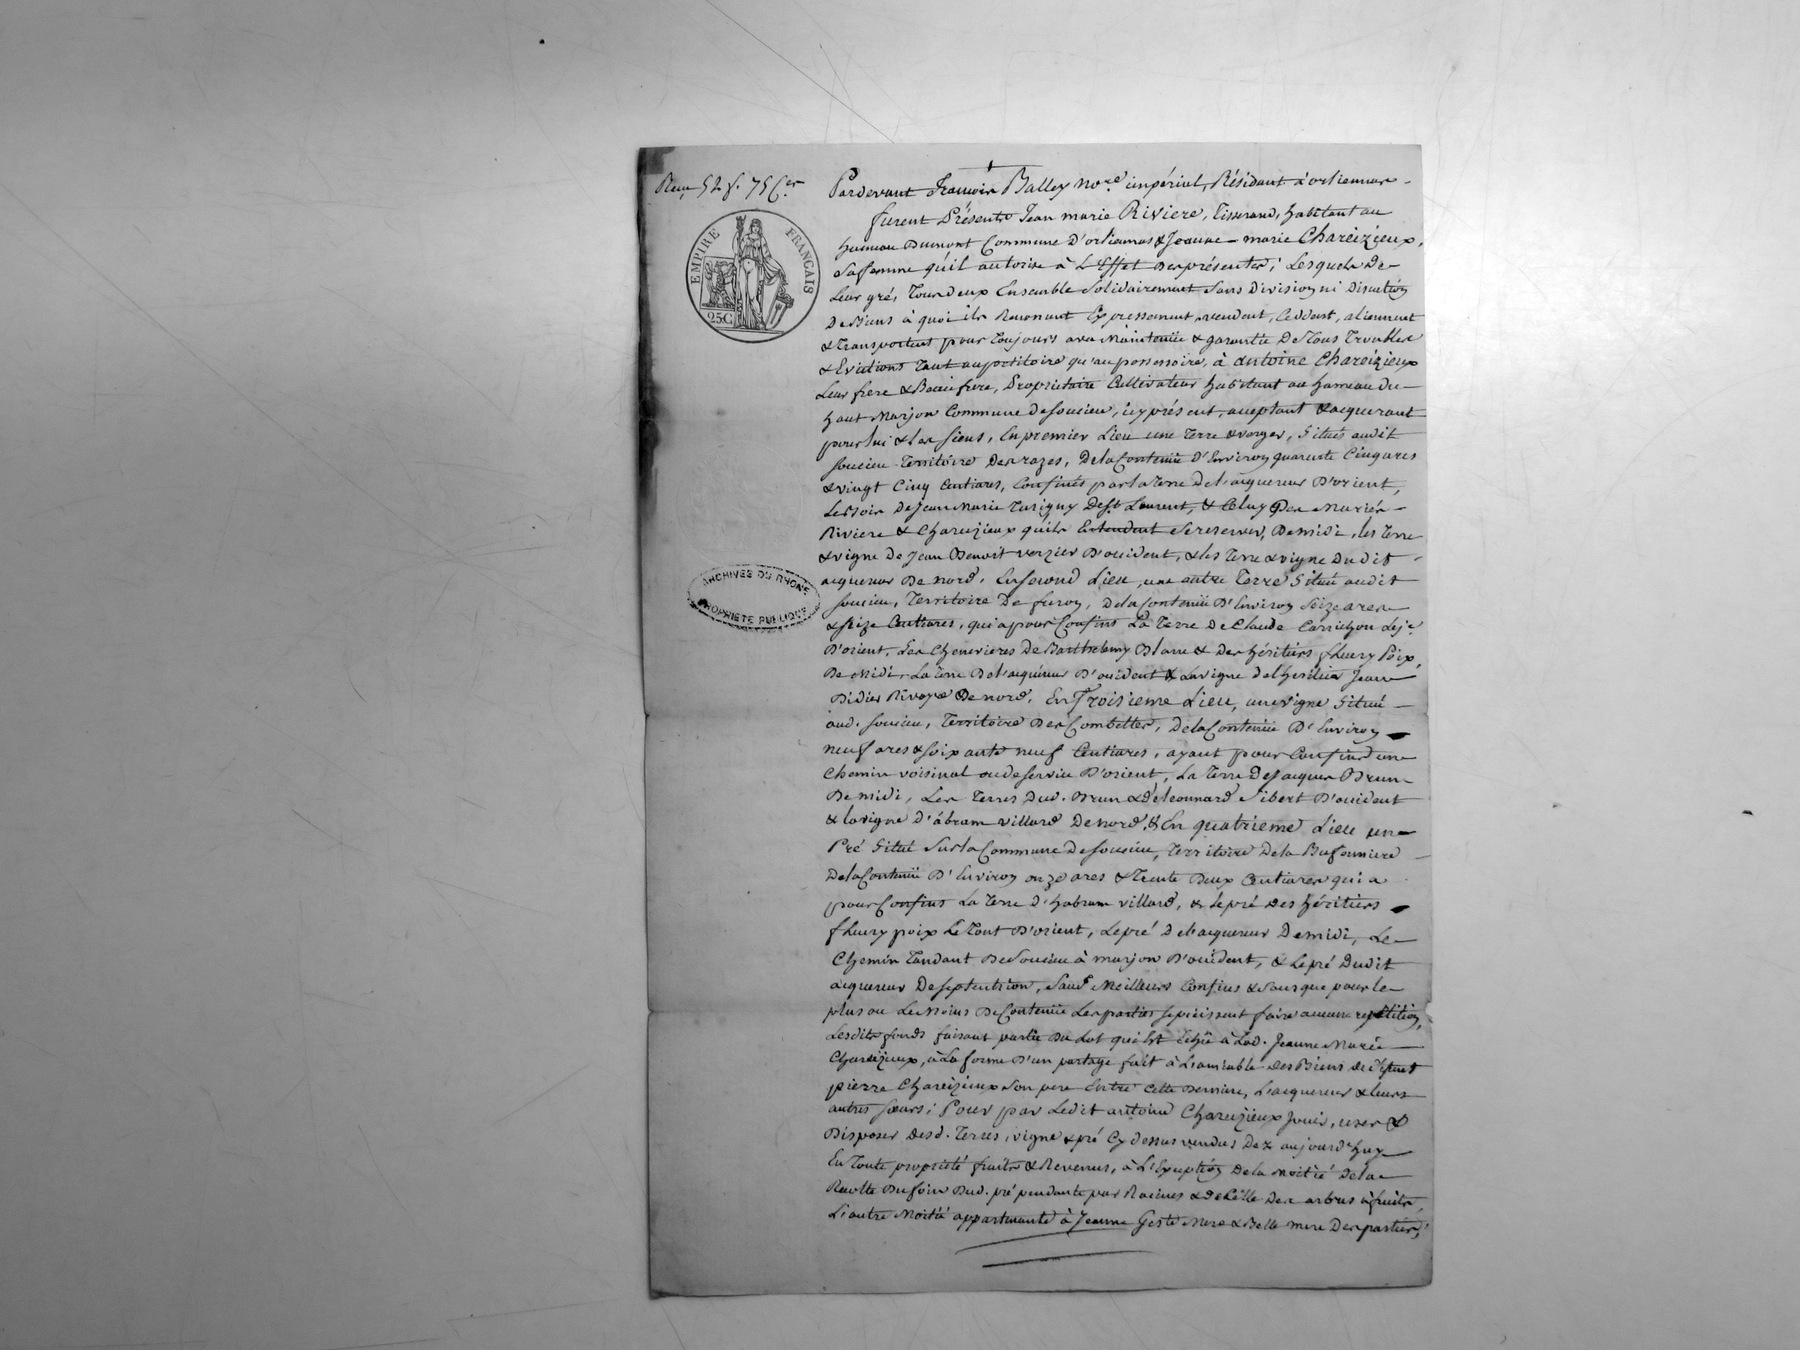 Reçu 52 f. 75 C.es
EMPIRE FRANÇAIS
25C
ARCHIVES DU RHONE
PROPRIETE PUBLIQUE
Pardevant françois Balley no.re impérial, Résidant à orliennas
furent Présents Jean marie Riviere, Tisserand, habitant au
hameau Dumont Commune D'orliennas & Jeanne marie Chareizieux,
Safemme qu'il autorise à L'Effet des présentes; Lesquels De
Leur gré, Tous deux Ensemble Solidairement Sans Division ni Discution
De Biens à quoi ils Renoncent Expressement, vendent, Ceddent, alienent
& Transportent pour Toujours avec Maintenüe & garantie De Tous Troubles
& Evictions Tant aupetitoire qu'au possessoire, à antoine Chareizieux
Leur frere & Beaufrere, Proprietaire Cultivateur habitant au Hameau du
haut Marjon Commune De Soucieu, icy présent, acceptant & acquerant
pour lui & les siens, En premier Lieu une Terre & verger, Situés audit
Soucieu Territoire Des razes, De la Contenüe D'Environ quarante Cinq ares
& vingt Cinq Centiares, Confinés par la Terre De l'acquereur D'orient,
Celuy Des Mariés
Riviere & Chareizieux qu'ils Entendent Sereserver, De midi, les Terre
& vigne De Jean Benoit verzier D'occident, & les Terre & vigne Dudit
acquereur De nord. En Second Lieu, une autre Terre Située audit
Soucieu, Territoire De furon, De la Contenüe D'Environ Seize ares
& Seize Centiares, qui a pour Confins La Terre De Claude Carrichon Le j.e
D'orient, Les Chenevieres De Barthelemy Blanc & Des héritiers fleury Poix,
De Midi, La Terre De l'acquéreur D'occident & La vigne
De nord. En Troisieme Lieu, une vigne Située
aud. Soucieu, Territoire Des Combettes, De la Contenüe D'Environ
neuf ares & Soixante neuf Centiares, ayant pour Confins un
Chemin voisinal ou de Service D'orient, La Terre De Jacques Brun
De midi, Les Terres Dud. Brun & De Leonnard Sibert D'occident
& la vigne D'abram villard De nord, & En quatrieme Lieu un
Pré Situé Sur la Commune De Soucieu, Territoire De la
De la Contenüe D'Environ onze ares & Trente Deux Centiares qui a
pour Confins La Terre D'habram villard, & le pré Des héritiers
fleury poix Le Tout D'orient, Le pré De l'acquereur De midi, Le
Chemin Tandant De Soucieu à marjon D'occident, & Le pré Dudit
acquereur De septentrion, Sauf Meilleurs Confins & Sans que pour le
plus ou Le Moins De Contenüe Les parties se puissent faire aucune repétition,
Lesdits fonds faisant partie Du Lot qui Est Echü à Lad. Jeanne Marie
Chareizieux, à La forme D'un partage fait à L'amiable des Biens de Défunt
pierre Chareizieux Son pere Entre Cette Derniere, L'acquereur & leurs
autres Sœurs; Pour par Ledit antoine Chareizieux Jouir, user &
Disposer Desd. Terres, vigne & pré Cy dessus vendus Dez aujourd'huy
En Toute propriété fruits & Revenus, à L'Exception De la Moitié De la
Recolte Dufoin Dud. pré pendante par Racines & de Celle Des arbres à fruits,
L'autre Moitié appartenante à Jeanne Geste Mere & Belle mere Des parties,